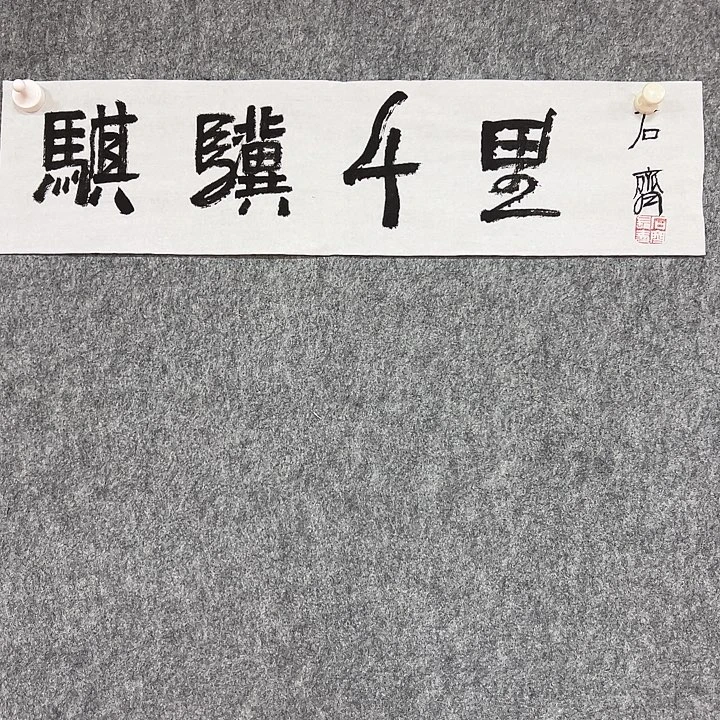 騏驥千里
石齊